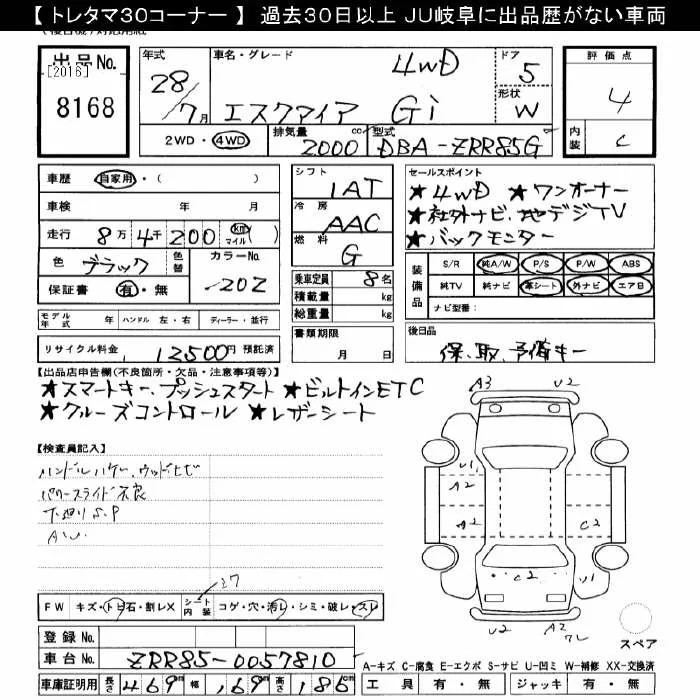 【 トレタマ30コーナー 】 過去30日以上 JU岐阜に出品歴がない車両
出品No.
[2016]
8168
年式
28/7月
車名・グレード
4WD
エスクァイア Gi
ドア
5
形状
W
評価点
4
内装
C
2WD・4WD
排気量
2000 cc
型式
DBA-ZRR85G
車歴 自家用・( )
車検 年 月
走行 8万4千200 (km マイル)
色 ブラック 色替
カラーNo. 202
保証書 有・無
シフト
1AT
冷房
AAC
燃料
G
乗車定員 8名
積載量 kg
総重量 kg
書類期限
月 日
セールスポイント
★4WD ★ワンオーナー
★社外ナビ、地デジTV
★バックモニター
装備品
S/R 純A/W P/S P/W ABS
純TV 純ナビ 革シート 外ナビ エアB
ナビ型番:
モデル年式 年 ハンドル 左・右 ディーラー・並行
リサイクル料金 12500円 預託済
後日品
保、取、予備キー
【出品店申告欄(不良箇所・欠品・注意事項等)】
★スマートキー、プッシュスタート ★ビルトインETC
★クルーズコントロール ★レザーシート
【検査員記入】
ハンドルハゲ、ウッドヒビ
パワースライド不良
下廻りS.P
A.U.
A3 U2
U1
A2
A2
C2
C2
U1
U2 A2
スペア
27
FW キズ・トビ石・割レX シート内装 コゲ・穴・汚レ・シミ・破レ・スレ
登録No.
車台No. ZRR85-0057810
車庫証明用 長さ 469 cm 幅 169 cm 高さ 186 cm
A-キズ C-腐食 E-エクボ S-サビ U-凹ミ W-補修 XX-交換済
工具 有・無 ジャッキ 有・無